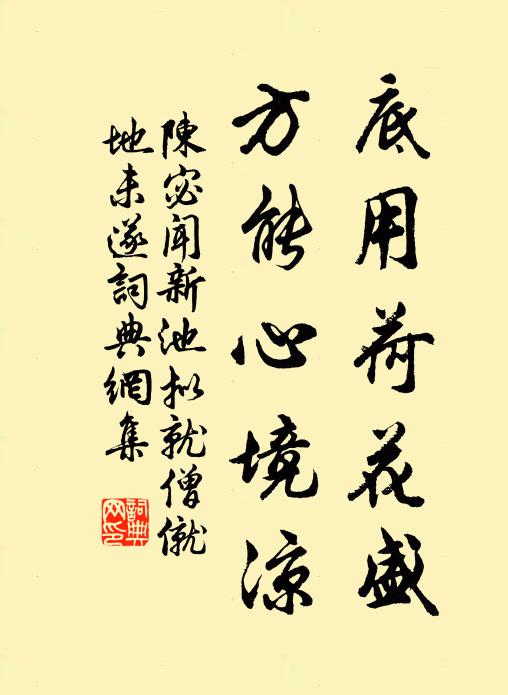 底用荷花盛
方能心境涼
陳宓聞新池拟就僧僦
地未遂詞典網集
詞典
网印